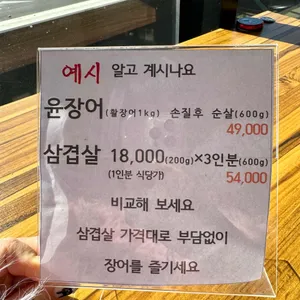 예시 알고 계시나요
윤장어(활장어1kg) 손질후 순살(600g)
49,000
삼겹살 18,000(200g)×3인분(600g)
(1인분 식당가) 54,000
비교해 보세요
삼겹살 가격대로 부담없이
장어를 즐기세요